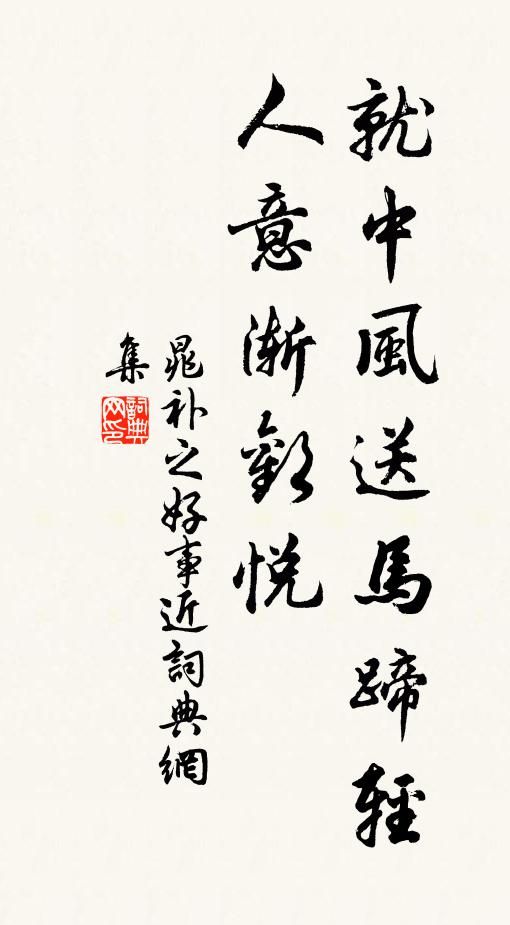 就中風送馬蹄輕
人意漸歡悅
晁補之好事近詞典網
集
詞典
网印